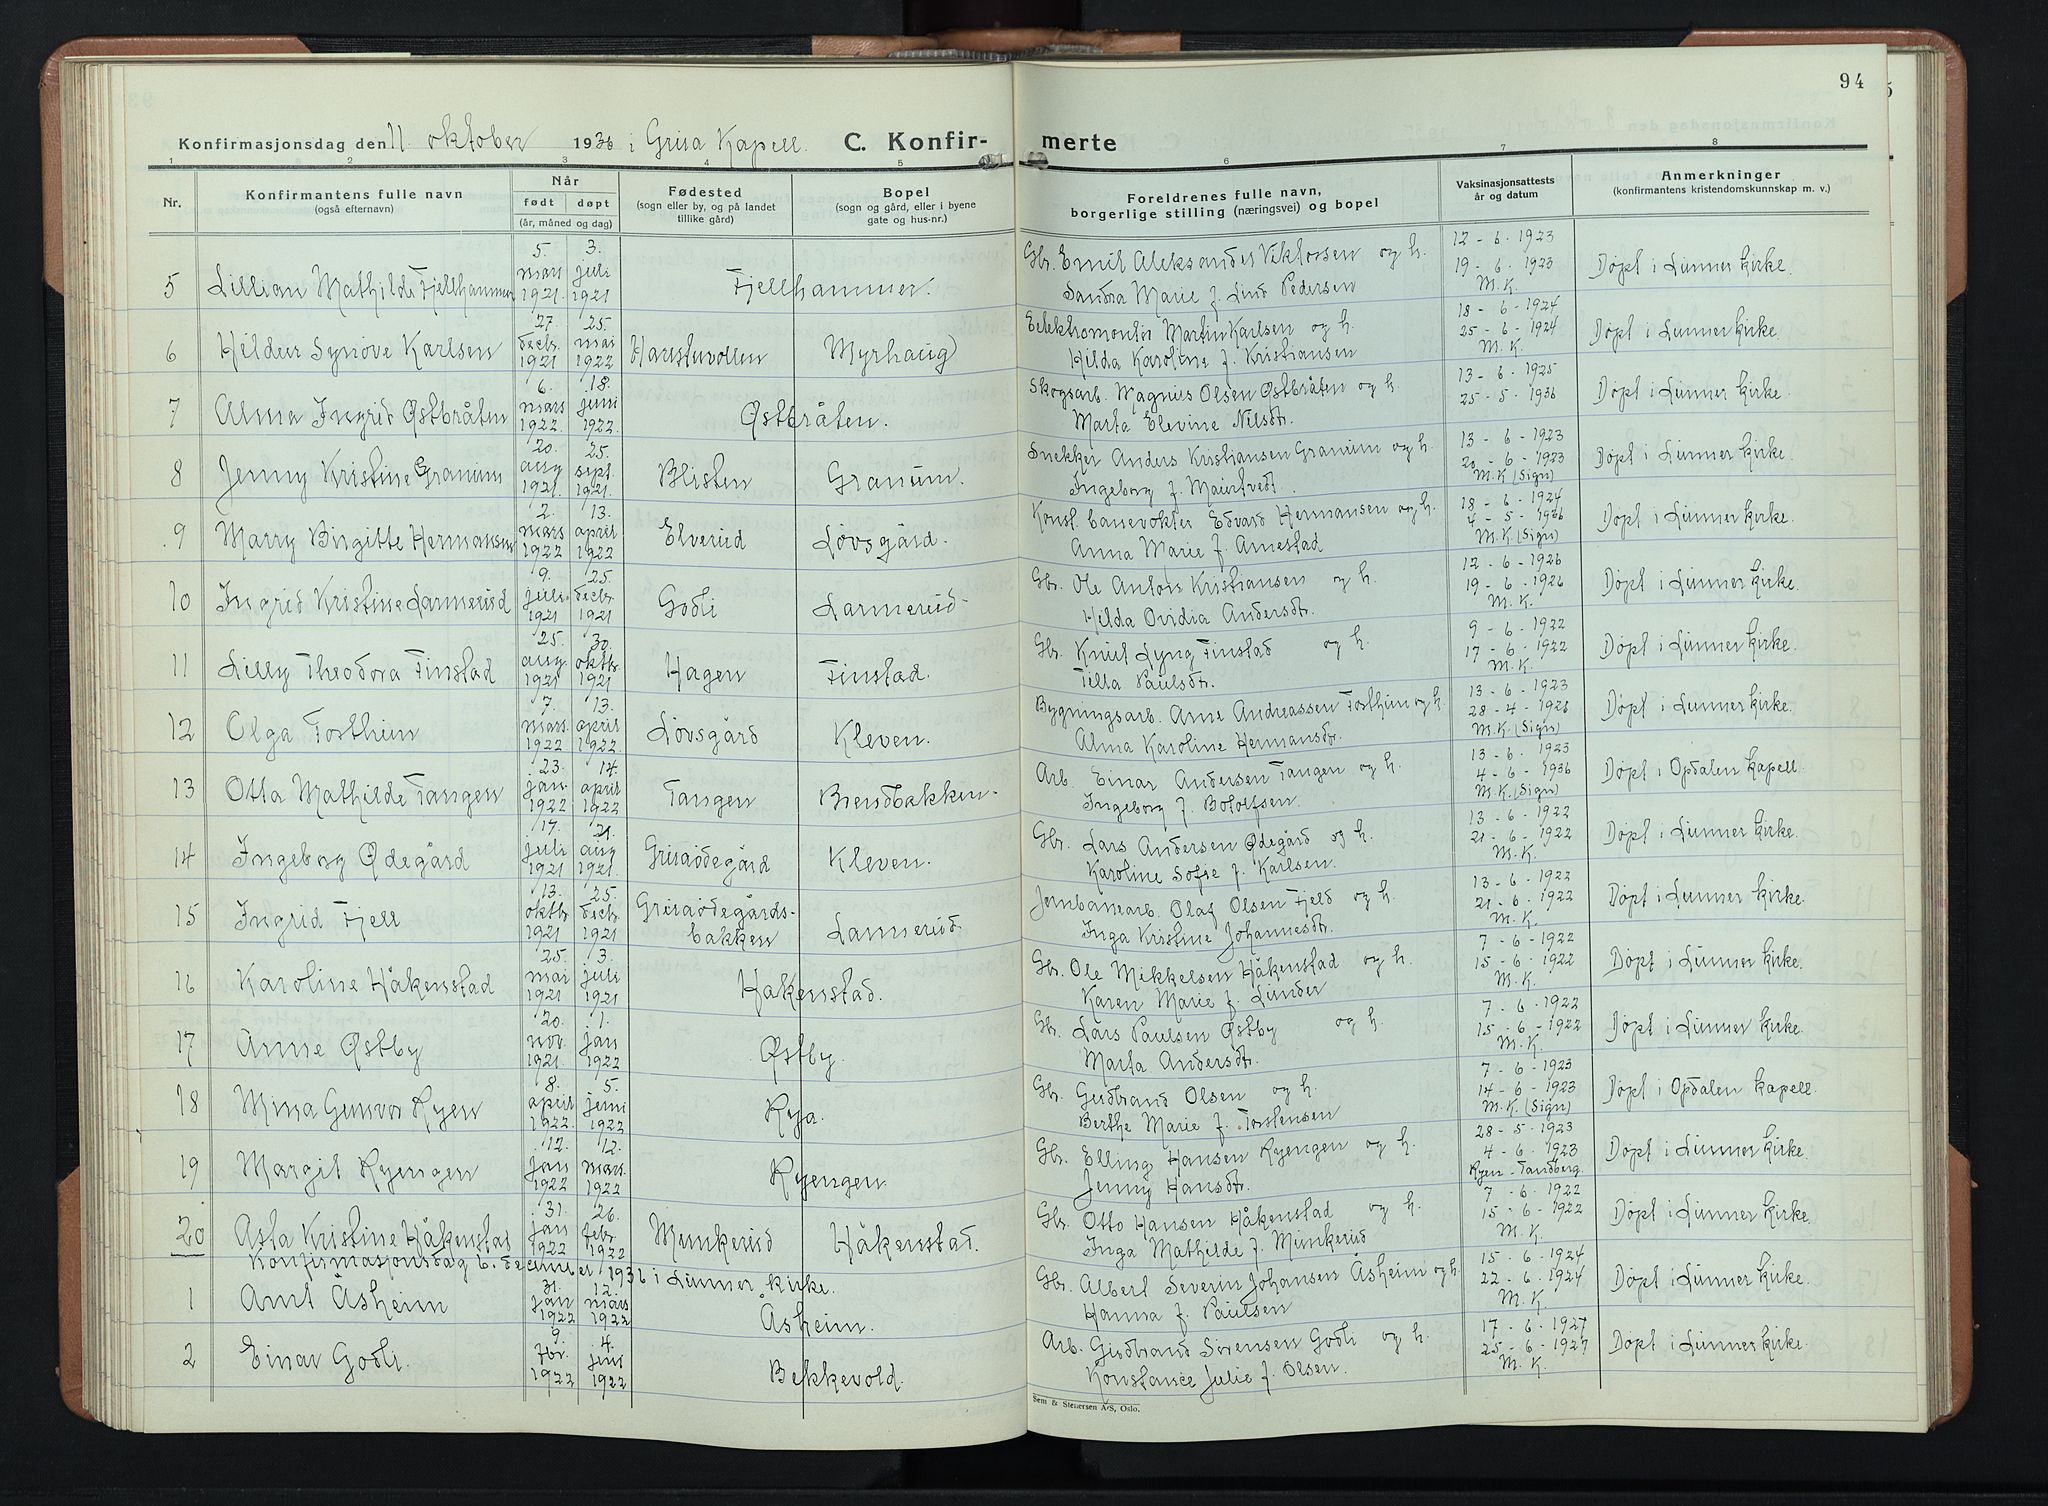 94
Konfirmasjonsdag den 11. oktober 1936 i Grua Kapell. C. Konfir- merte
1 2 3 4 5 6 7 8
Nr. Konfirmantens fulle navn (også efternavn) Når født døpt (år, måned og dag) Fødested (sogn eller by, og på landet tillike gård) Bopel (sogn og gård, eller i byene gate og hus-nr.) Foreldrenes fulle navn, borgerlige stilling (næringsvei) og bopel Vaksinasjonsattests år og datum Anmerkninger (konfirmantens kristendomskunnskap m. v.)
5 Lillian Mathilde Fjellhammer 5. mars 1921 3. juli 1921 Fjellhammer. Gbr. Emil Aleksander Viktorsen og h. Sandra Marie f. Lind Pedersen 12-6-1923 19-6-1923 M.K. Døpt i Lunner kirke.
6 Hildur Synøve Karlsen 27. decbr. 1921 25. mai 1922 Haustuvollen Myrhaug Elektromontør Martin Karlsen og h. Hilda Karoline f. Kristiansen 18-6-1924 25-6-1924 M.K. Døpt i Lunner kirke.
7 Alma Ingrid Østbråten 6. mars 1922 18. juni 1922. Østbråten. Skogsarb. Magnus Olsen Østbråten og h. Marta Elevine Nilsdtr. 13-6-1925 25-5-1936 Døpt i Lunner kirke.
8 Jenny Kristine Granum 20. aug 1921. 25. sept. 1921. Blisten Granum. Snekker Anders Kristiansen Granum og h. Ingeborg f. Maurtvedt. 13-6-1923 20-6-1923 M.K (Sign) Døpt i Lunner kirke.
9 Marry Birgitte Hermansen 2. mars 1922 13. april 1922 Elverud Løvsgård. Konst. banevokter Edvard Hermansen og h. Anna Marie f. Amestad 18-6-1924 4-5-1936 M.K (Sign) Døpt i Lunner kirke.
10 Ingrid Kristine Larmerud 9. juli 1921 25. decbr. 1921 Godli Larmerud Gbr. Ole Anton Kristiansen og h. Hilda Ovidia Andersdtr. 12-6-1926 19-6-1926 M.K. Døpt i Lunner kirke.
11 Lilly Theodora Finstad 25. aug. 1921 30. oktbr. 1921 Hagen Finstad. Gbr. Knut Lyng Finstad og h. Tilla Paulsdtr. 9-6-1922 17-6-1922 M.K. Døpt i Lunner kirke.
12 Olga Tosthun 7. mars. 1922 13. april 1922. Løvsgård Kleven. Bygningsarb. Arne Andreassen Tosthun og h. Alma Karoline Hermansdtr. 13-6-1923 28-4-1926 M.K. (Sign) Døpt i Lunner kirke.
13 Otta Mathilde Tangen 23. jan. 1922 14. april 1922 Tangen Brendbakken. Arb. Einar Andersen Tangen og h. Ingeborg f. Bololfsen. 13-6-1923 4-6-1936 M.K. (Sign) Døpt i Opdalen kapell.
14 Ingeborg Ødegård 17. juli 1921 21. aug 1921. Gruaødegård Kleven. Gbr. Lars Andersen Ødegård og h. Karoline Sofie f. Karlsen. 13-6-1922 21-6-1922 M.K. Døpt i Lunner kirke.
15 Ingrid Fjell 13. oktbr. 1921 25. decbr. 1921 Gruaødegårds-bakken Larmerud. Jernbanearb. Olaf Olsen Fjeld og h. Inga Kristine Johannesdtr. 13-6-1922 21-6-1922 M.K. Døpt i Lunner kirke.
16 Karoline Håkenstad 25. mai 1921 3. juli 1921 Håkenstad. Gbr. Ole Mikkelsen Håkenstad og h. Karen Marie f. Lunder 7-6-1922 15-6-1922 M.K. Døpt i Lunner kirke.
17 Anne Østby 20. nov. 1921. 1. jan 1922 Østby. Gbr. Lars Paulsen Østby og h. Marta Andersdtr. 7-6-1922 15-6-1922 M.K. Døpt i Lunner kirke.
18 Mina Gunvor Ryen 8. april 1922. 5. juni 1922 Rya. Gbr. Gudbrand Olsen og h. Berthe Marie f. Torstensen 7-6-1923 14-6-1923 M.K. (Sign) Døpt i Opdalen kapell.
19 Margit Ryengen 12. jan 1922 12. mars. 1922 Ryengen Gbr. Elling Hansen Ryengen og h. Jenny Hansdtr. 28-5-1923 4-6-1923 Ryen-Tandberg. Døpt i Lunner kirke.
20 Asta Kristine Håkenstad 31. jan 1922 26. febr. 1922 Munkerud Håkenstad. Gbr. Otto Hansen Håkenstad og h. Inga Mathilde f. Munkerud 7-6-1922 15-6-1922 M.K. Døpt i Lunner kirke.
Konfirmasjonsdag 6. december 1936 i Lunner kirke.
1 Arnt Åsheim 31. jan 1922 12. mars 1922 Åsheim. Gbr. Albert Severin Johansen Åsheim og h. Hanna f. Paulsen 15-6-1924 22-6-1924 M.K. Døpt i Lunner kirke.
2 Einar Godli. 9. fbr. 1922 4. juni 1922 Bekkevold. Arb. Gudbrand Sørensen Godli og h. Konstance Julie f. Olsen. 17-6-1927 25-6-1927 M.K. Døpt i Lunner kirke.
Sem & Stenersen A/S, Oslo.